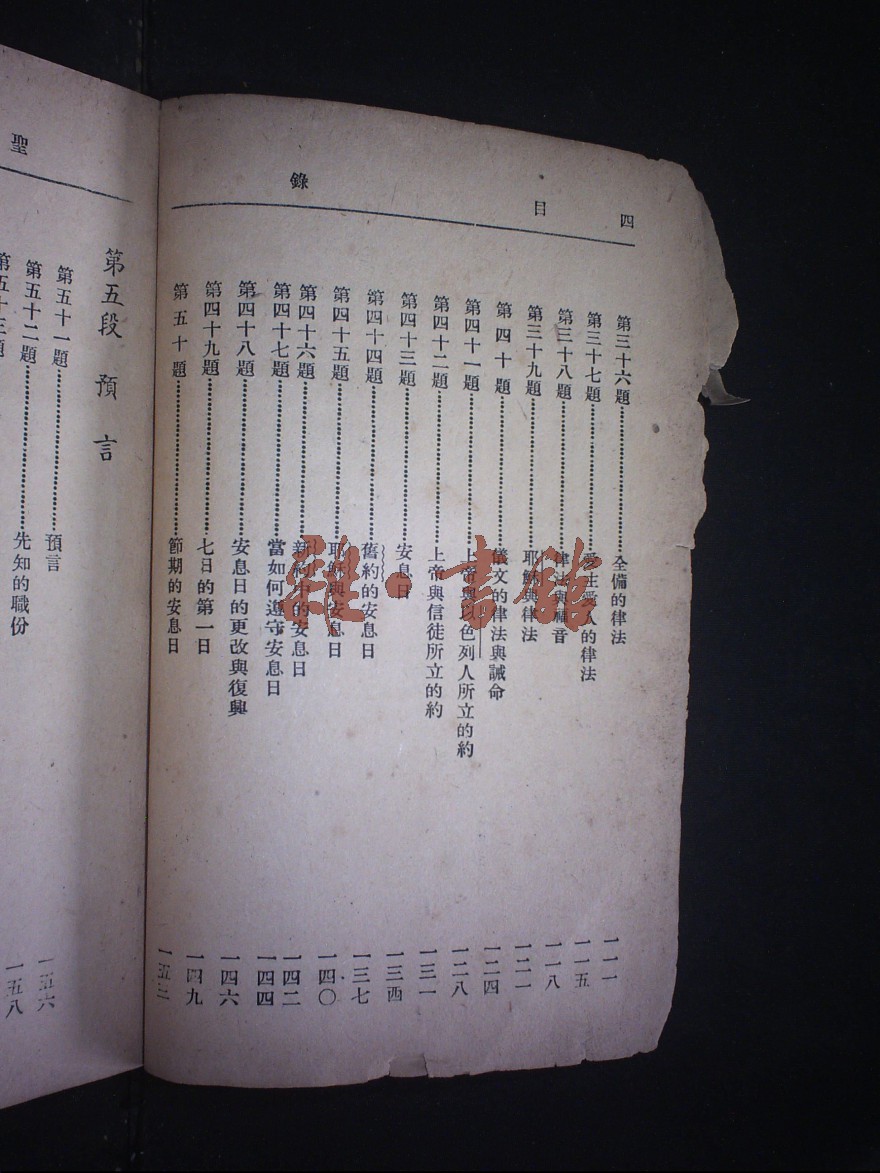 四 目 錄
第三十六題……全備的律法 一一一
第三十七題……愛主愛人的律法 一一五
第三十八題……律法與福音 一一八
第三十九題……耶穌與律法 一二一
第四十題……儀文的律法與誡命 一二四
第四十一題……上帝與以色列人所立的約 一二八
第四十二題……上帝與信徒所立的約 一三一
第四十三題……安息日 一三四
第四十四題……舊約的安息日 一三七
第四十五題……耶穌與安息日 一四〇
第四十六題……新約中的安息日 一四二
第四十七題……當如何遵守安息日 一四四
第四十八題……安息日的更改與復興 一四六
第四十九題……七日的第一日 一四九
第五十題……節期的安息日 一五二
聖
第五段 預言
第五十一題……預言 一五六
第五十二題……先知的職份 一五八
雜·書館